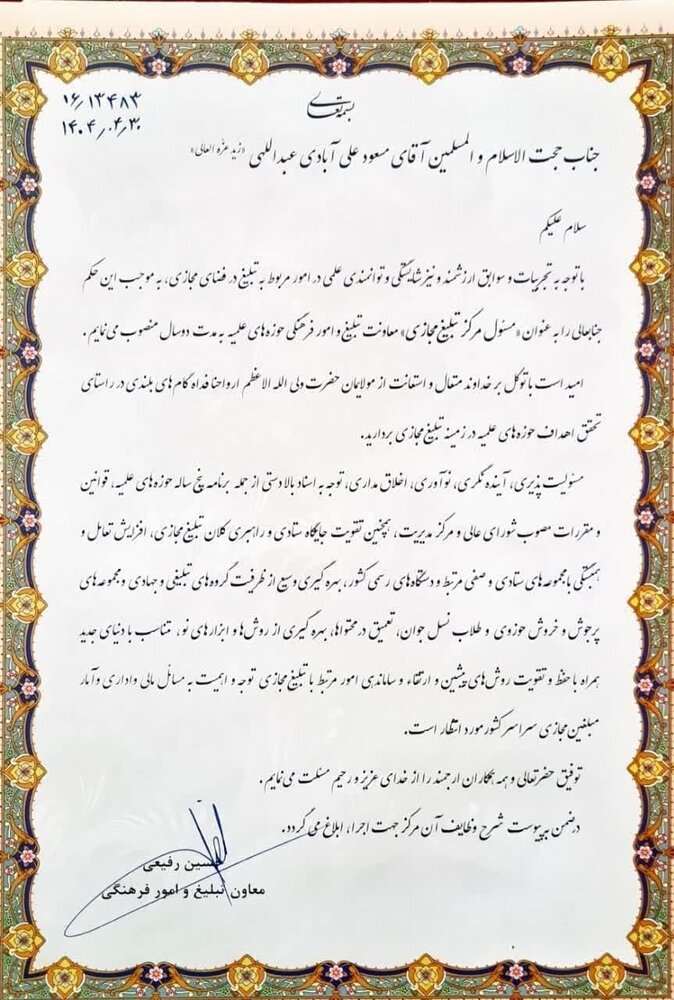 بسمه تعالی
۱۶/۱۳۴۸۳
۱۴۰۴/۰۴/۳۰
جناب حجت الاسلام و المسلمین آقای مسعود علی آبادی عبداللهی «زید عزه العالی»
سلام علیکم
باتوجه به تجربیات و سوابق ارزشمند و نیز شایستگی و توانمندی علمی در امور مربوط به تبلیغ در فضای مجازی، به موجب این حکم
جنابعالی را به عنوان «مسئول مرکز تبلیغ مجازی» معاونت تبلیغ و امور فرهنگی حوزه های علمیه به مدت دو سال منصوب می نمایم.
امید است با توکل بر خداوند متعال و استعانت از مولایمان حضرت ولی الله الاعظم ارواحنا فداه گام های بلندی در راستای
تحقق اهداف حوزه های علمیه در زمینه تبلیغ مجازی بردارید.
مسئولیت پذیری، آینده نگری، نوآوری، اخلاق مداری، توجه به اسناد بالا دستی از جمله برنامه پنج ساله حوزه های علمیه، قوانین
و مقررات مصوب شورای عالی و مرکز مدیریت، همچنین تقویت جایگاه ستادی و راهبری کلان تبلیغ مجازی، افزایش تعامل و
همبستگی با مجموعه های ستادی و صفی مرتبط و دستگاه های رسمی کشور، بهره گیری وسیع از ظرفیت گروه های تبلیغی و جهادی و مجموعه های
پرجوش و خروش حوزوی و طلاب نسل جوان، تعمیق در محتواها، بهره گیری از روش ها و ابزارهای نو، متناسب با دنیای جدید
همراه با حفظ و تقویت روش های پیشین و ارتقاء و ساماندهی امور مرتبط با تبلیغ مجازی توجه و اهمیت به مسائل مالی واداری وآمار
مبلغین مجازی سراسر کشور مورد انتظار است.
توفیق حضرتعالی و همه همکاران ارجمند را از خدای عزیز و رحیم مسئلت می نمایم.
درضمن به پیوست شرح وظایف آن مرکز جهت اجرا، ابلاغ می گردد.
حسین رفیعی
معاون تبلیغ و امور فرهنگی